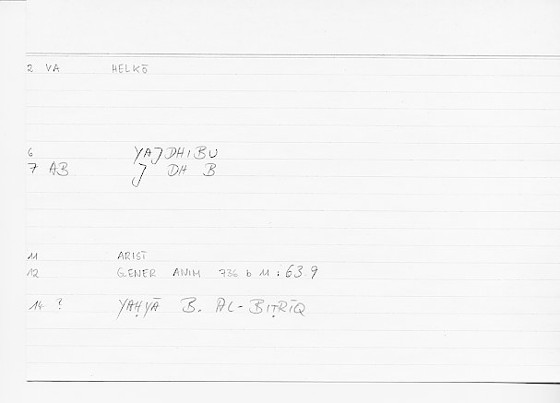 2 VA HELKŌ
6 YAJDHIBU
7 AB J DH B
11 ARIST
12 GENER ANIM 736 b 11 : 63.9
14 ? YAḤYĀ B. AL-BIṬRĪQ